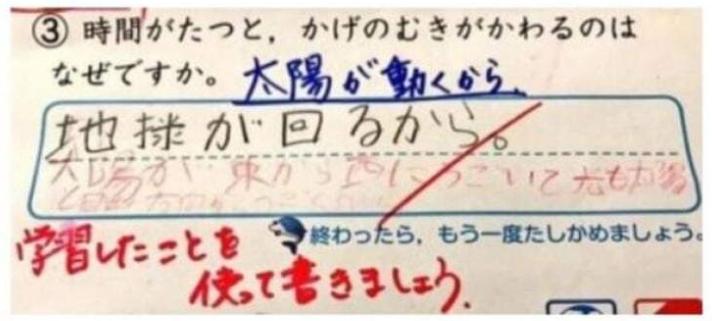 ③ 時間がたつと，かげのむきがかわるのは
なぜですか。 太陽が動くから。
地球が回るから。
太陽が 東から西にうごいて
学習したことを
終わったら，もう一度たしかめましょう。
使って書きましょう。